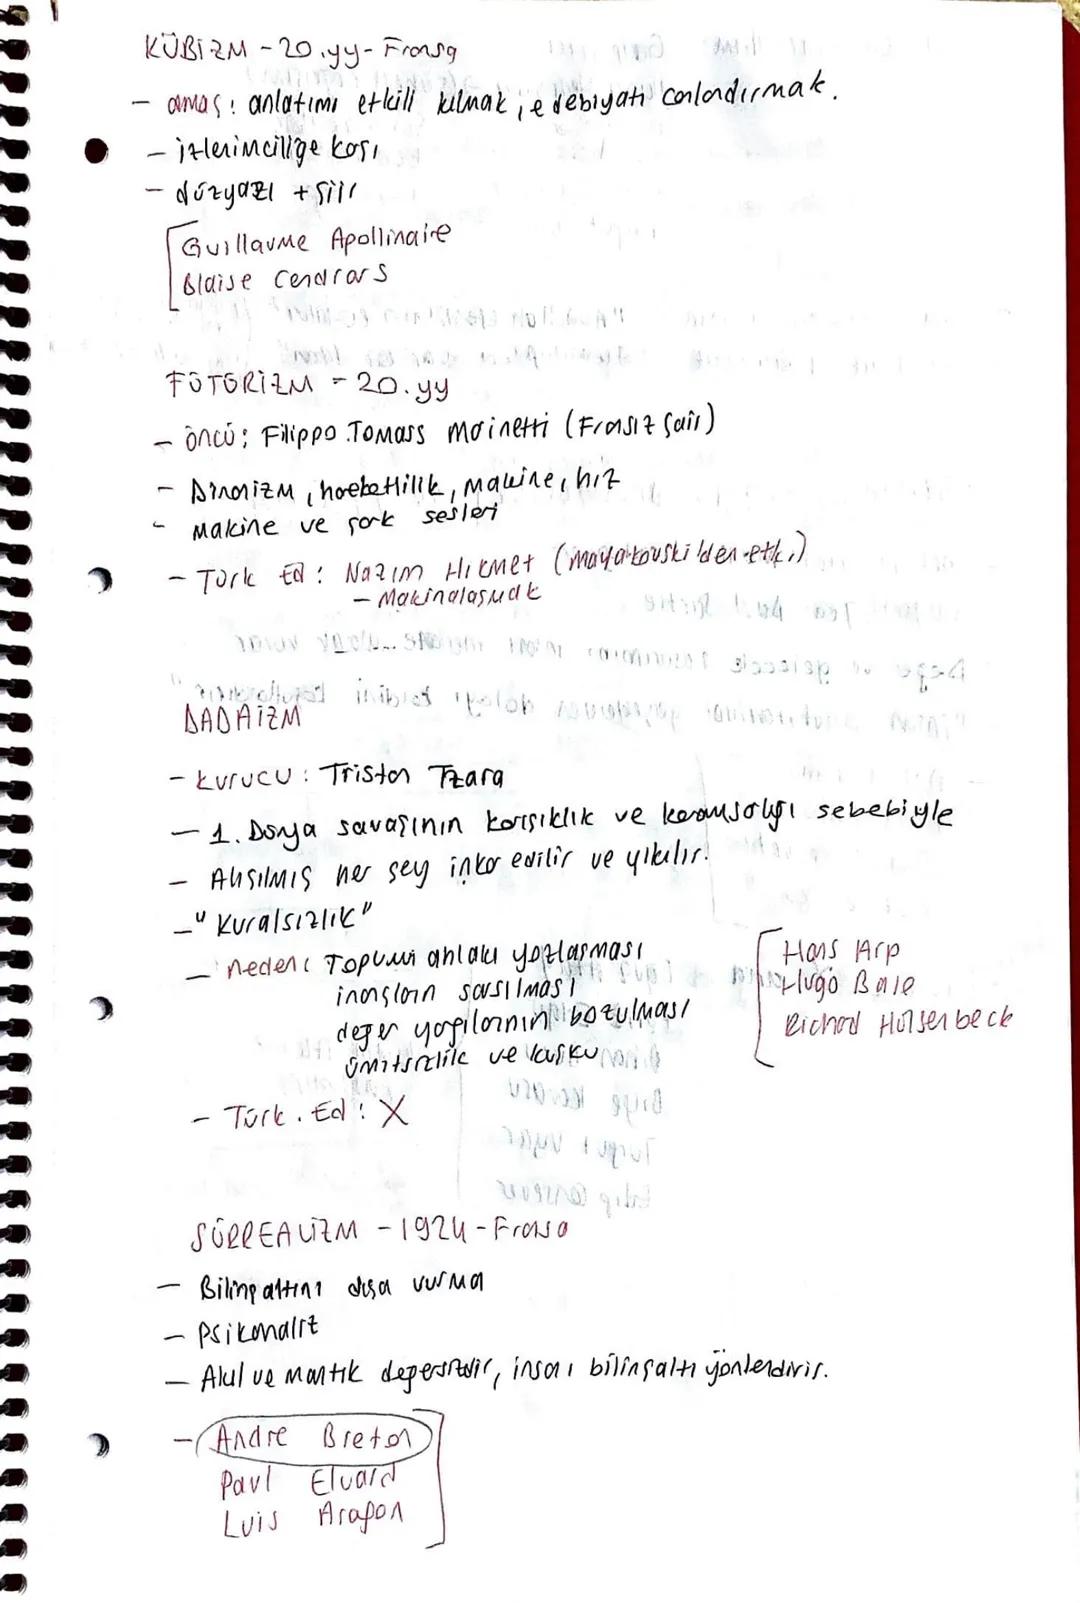 KÜBİZM - 20.yy - Fransa
- amaç: anlatımı etkili kılmak, edebiyatı canlandırmak.
- izlenimciliğe karşı
- düzyazı + şiir
Guillaume Apollinaire
Blaise Cendrars
FÜTÜRİZM - 20.yy
- öncü: Filippo Tomass Marinetti (Fransız şair)
- Dinamizm, hareketlilik, makine, hız
- Makine ve çark sesleri
- Türk Ed: Nazım Hikmet (Mayakovski'den etk.)
- Makinalaşmak
DADAİZM
- kurucu: Tristan Tzara
- 1. Dünya savaşının karışıklık ve karamsarlığı sebebiyle
- Alışılmış her şey inkar edilir ve yıkılır.
- "Kuralsızlık"
- neden: Toplum ahlakı yozlaşması
inançların sarsılması
değer yargılarının bozulması
ümitsizlik ve kuşku
Hans Arp
Hugo Bale
Richard Hülsenbeck
- Türk. Ed: X
SÜRREALİZM - 1924 - Fransa
- Bilinçaltını dışa vurma
- Psikanaliz
- Akıl ve mantık değersizdir, insanı bilinçaltı yönlendirir.
- Andre Breton
Paul Eluard
Luis Aragon